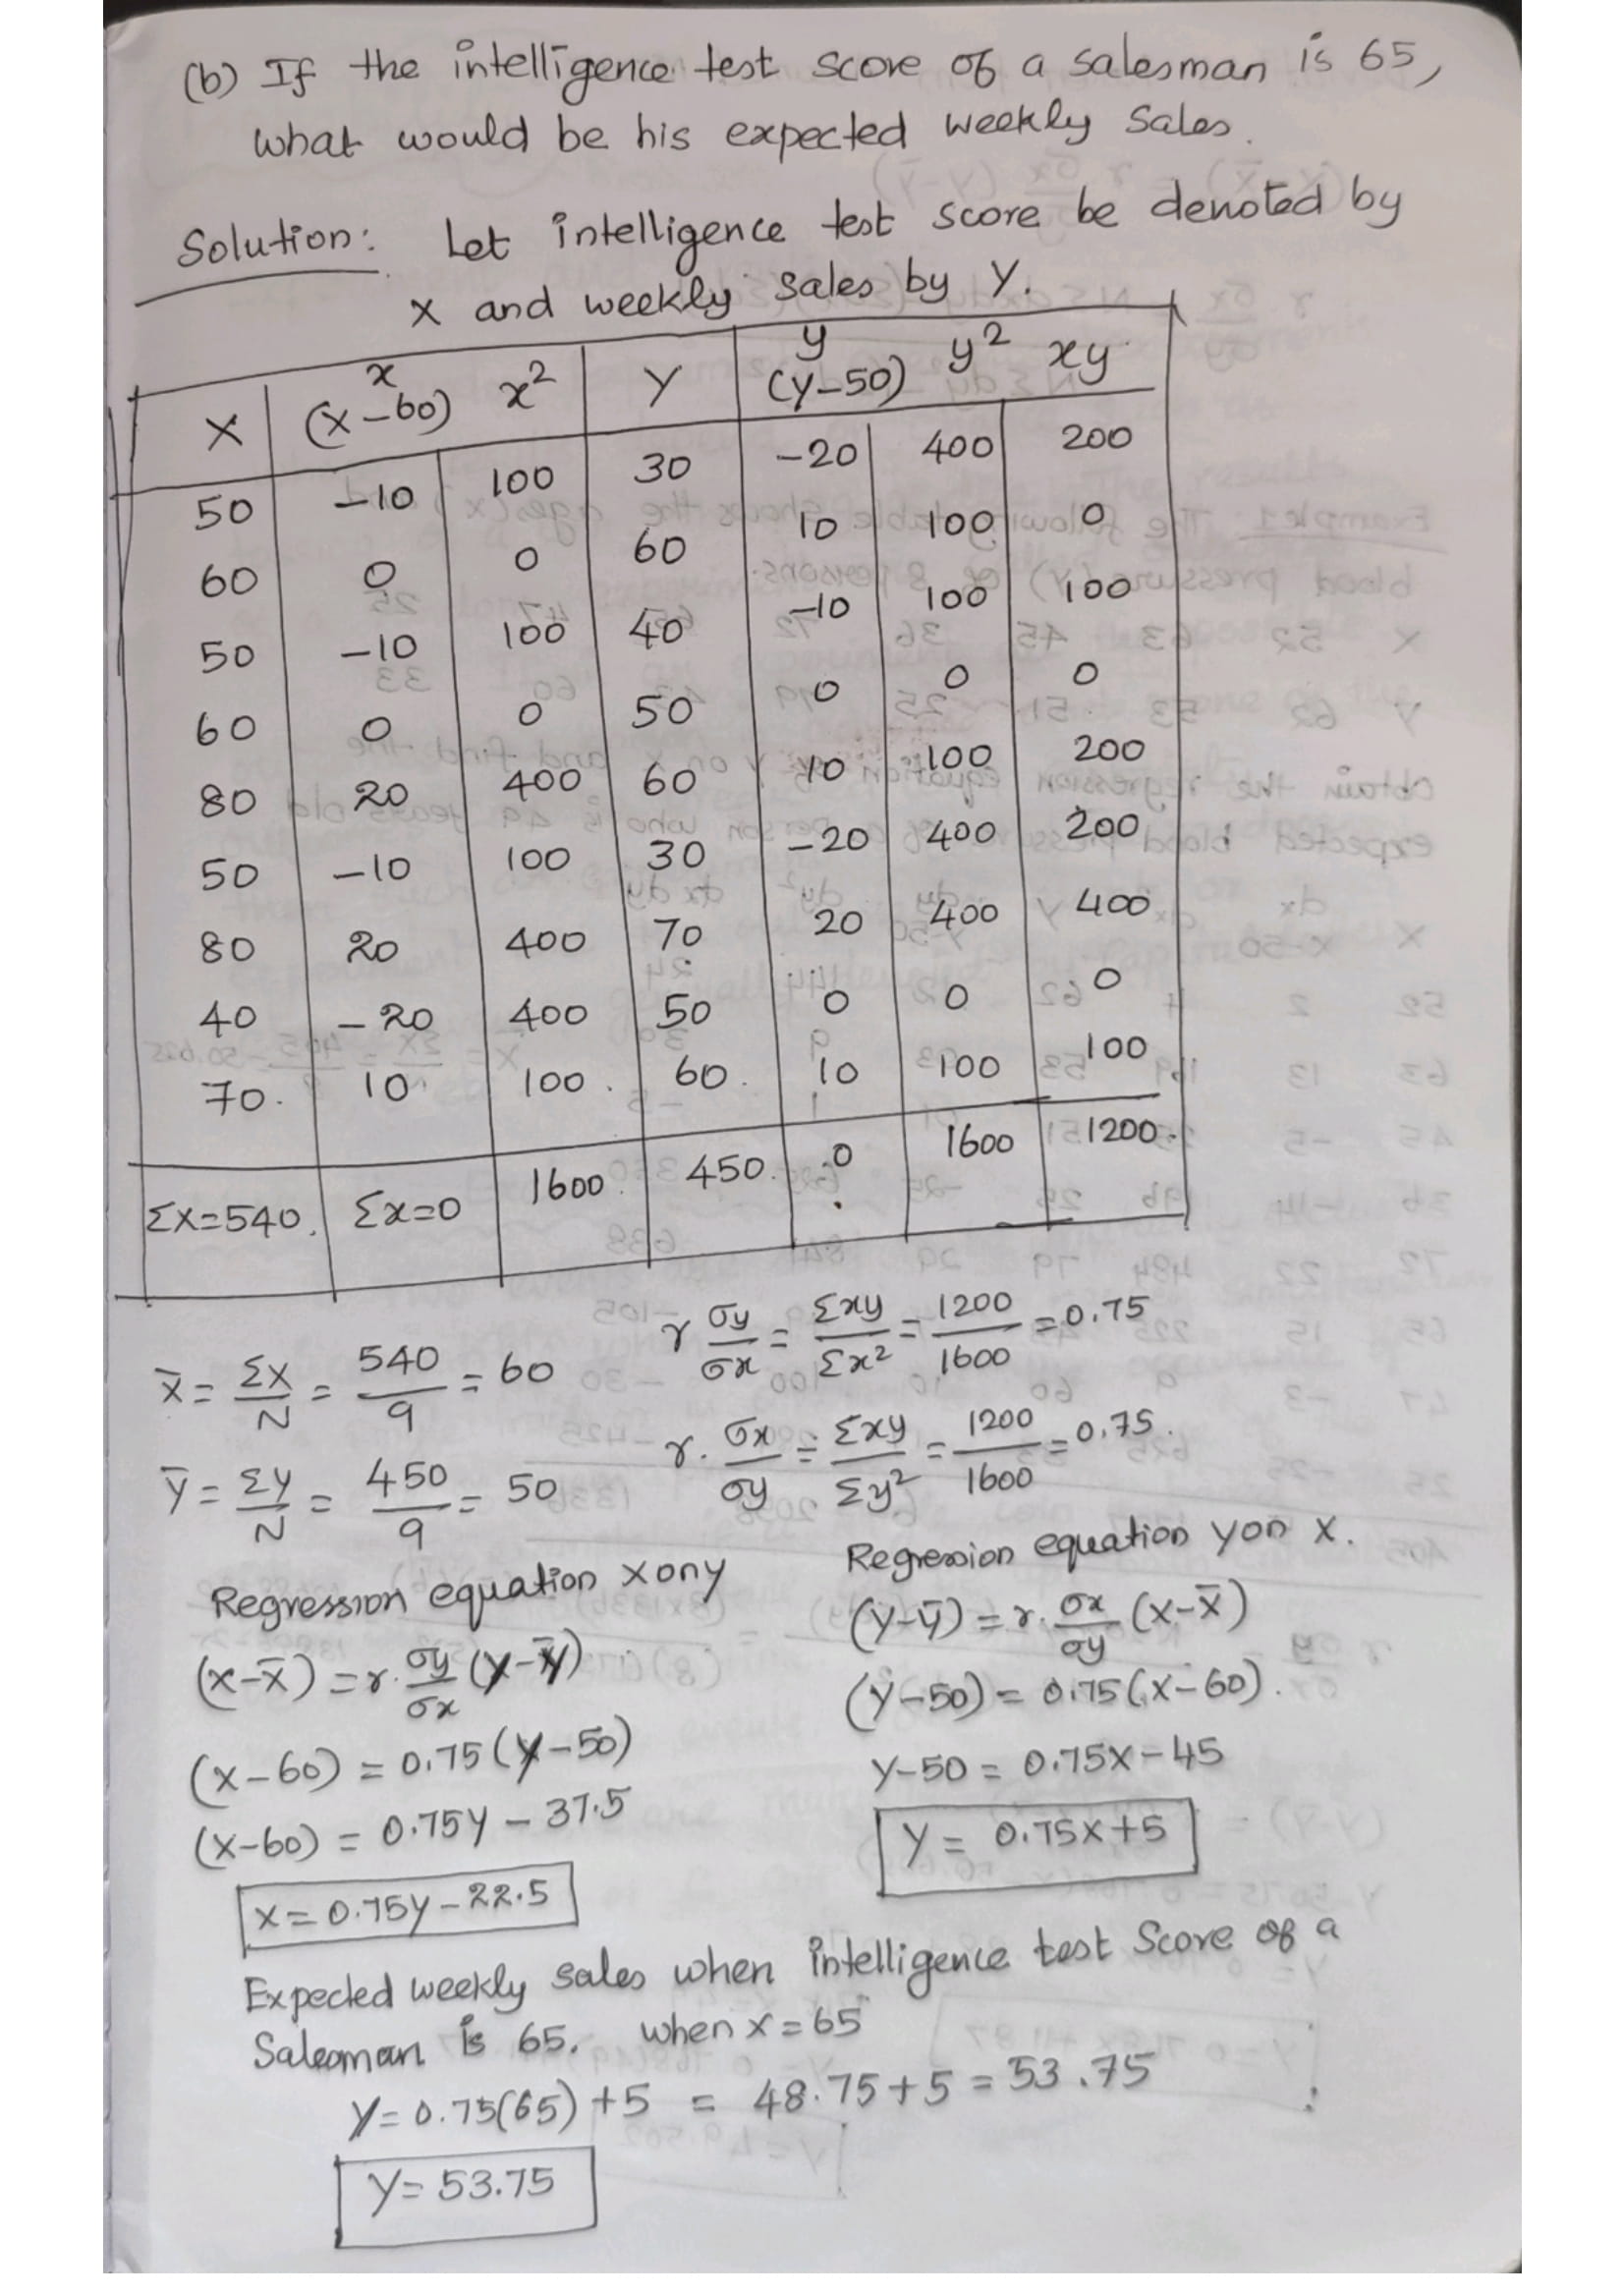 (b) If the intelligence test score of a salesman is 65,
what would be his expected weekly sales.
Solution: Let intelligence test score be denoted by
X and weekly sales by Y.
X x (X-60) x² Y y (Y-50) y² xy
50 -10 100 30 -20 400 200
60 0 0 60 10 100 0
50 -10 100 40 -10 100 100
60 0 0 50 0 0 0
80 20 400 60 10 100 200
50 -10 100 30 -20 400 200
80 20 400 70 20 400 400
40 -20 400 50 0 0 0
70. 10 100. 60. 10 100 100
ΣX=540. Σx=0 1600. 450. 0 1600 1200.
X̄ = ΣX/N = 540/9 = 60
r σy/σx = Σxy/Σx² = 1200/1600 = 0.75
Ȳ = ΣY/N = 450/9 = 50
r. σx/σy = Σxy/Σy² = 1200/1600 = 0.75.
Regression equation X on y
(x-x̄) = r. σy/σx (y-ȳ)
(x-60) = 0.75(y-50)
(x-60) = 0.75y - 37.5
x = 0.75y - 22.5
Regression equation y on x.
(y-ȳ) = r. σx/σy (x-x̄)
(y-50) = 0.75(x-60).
y-50 = 0.75x-45
Y = 0.75x+5
Expected weekly sales when intelligence test score of a
Salesman is 65. when x = 65
Y= 0.75(65) +5 = 48.75+5 = 53.75
Y= 53.75